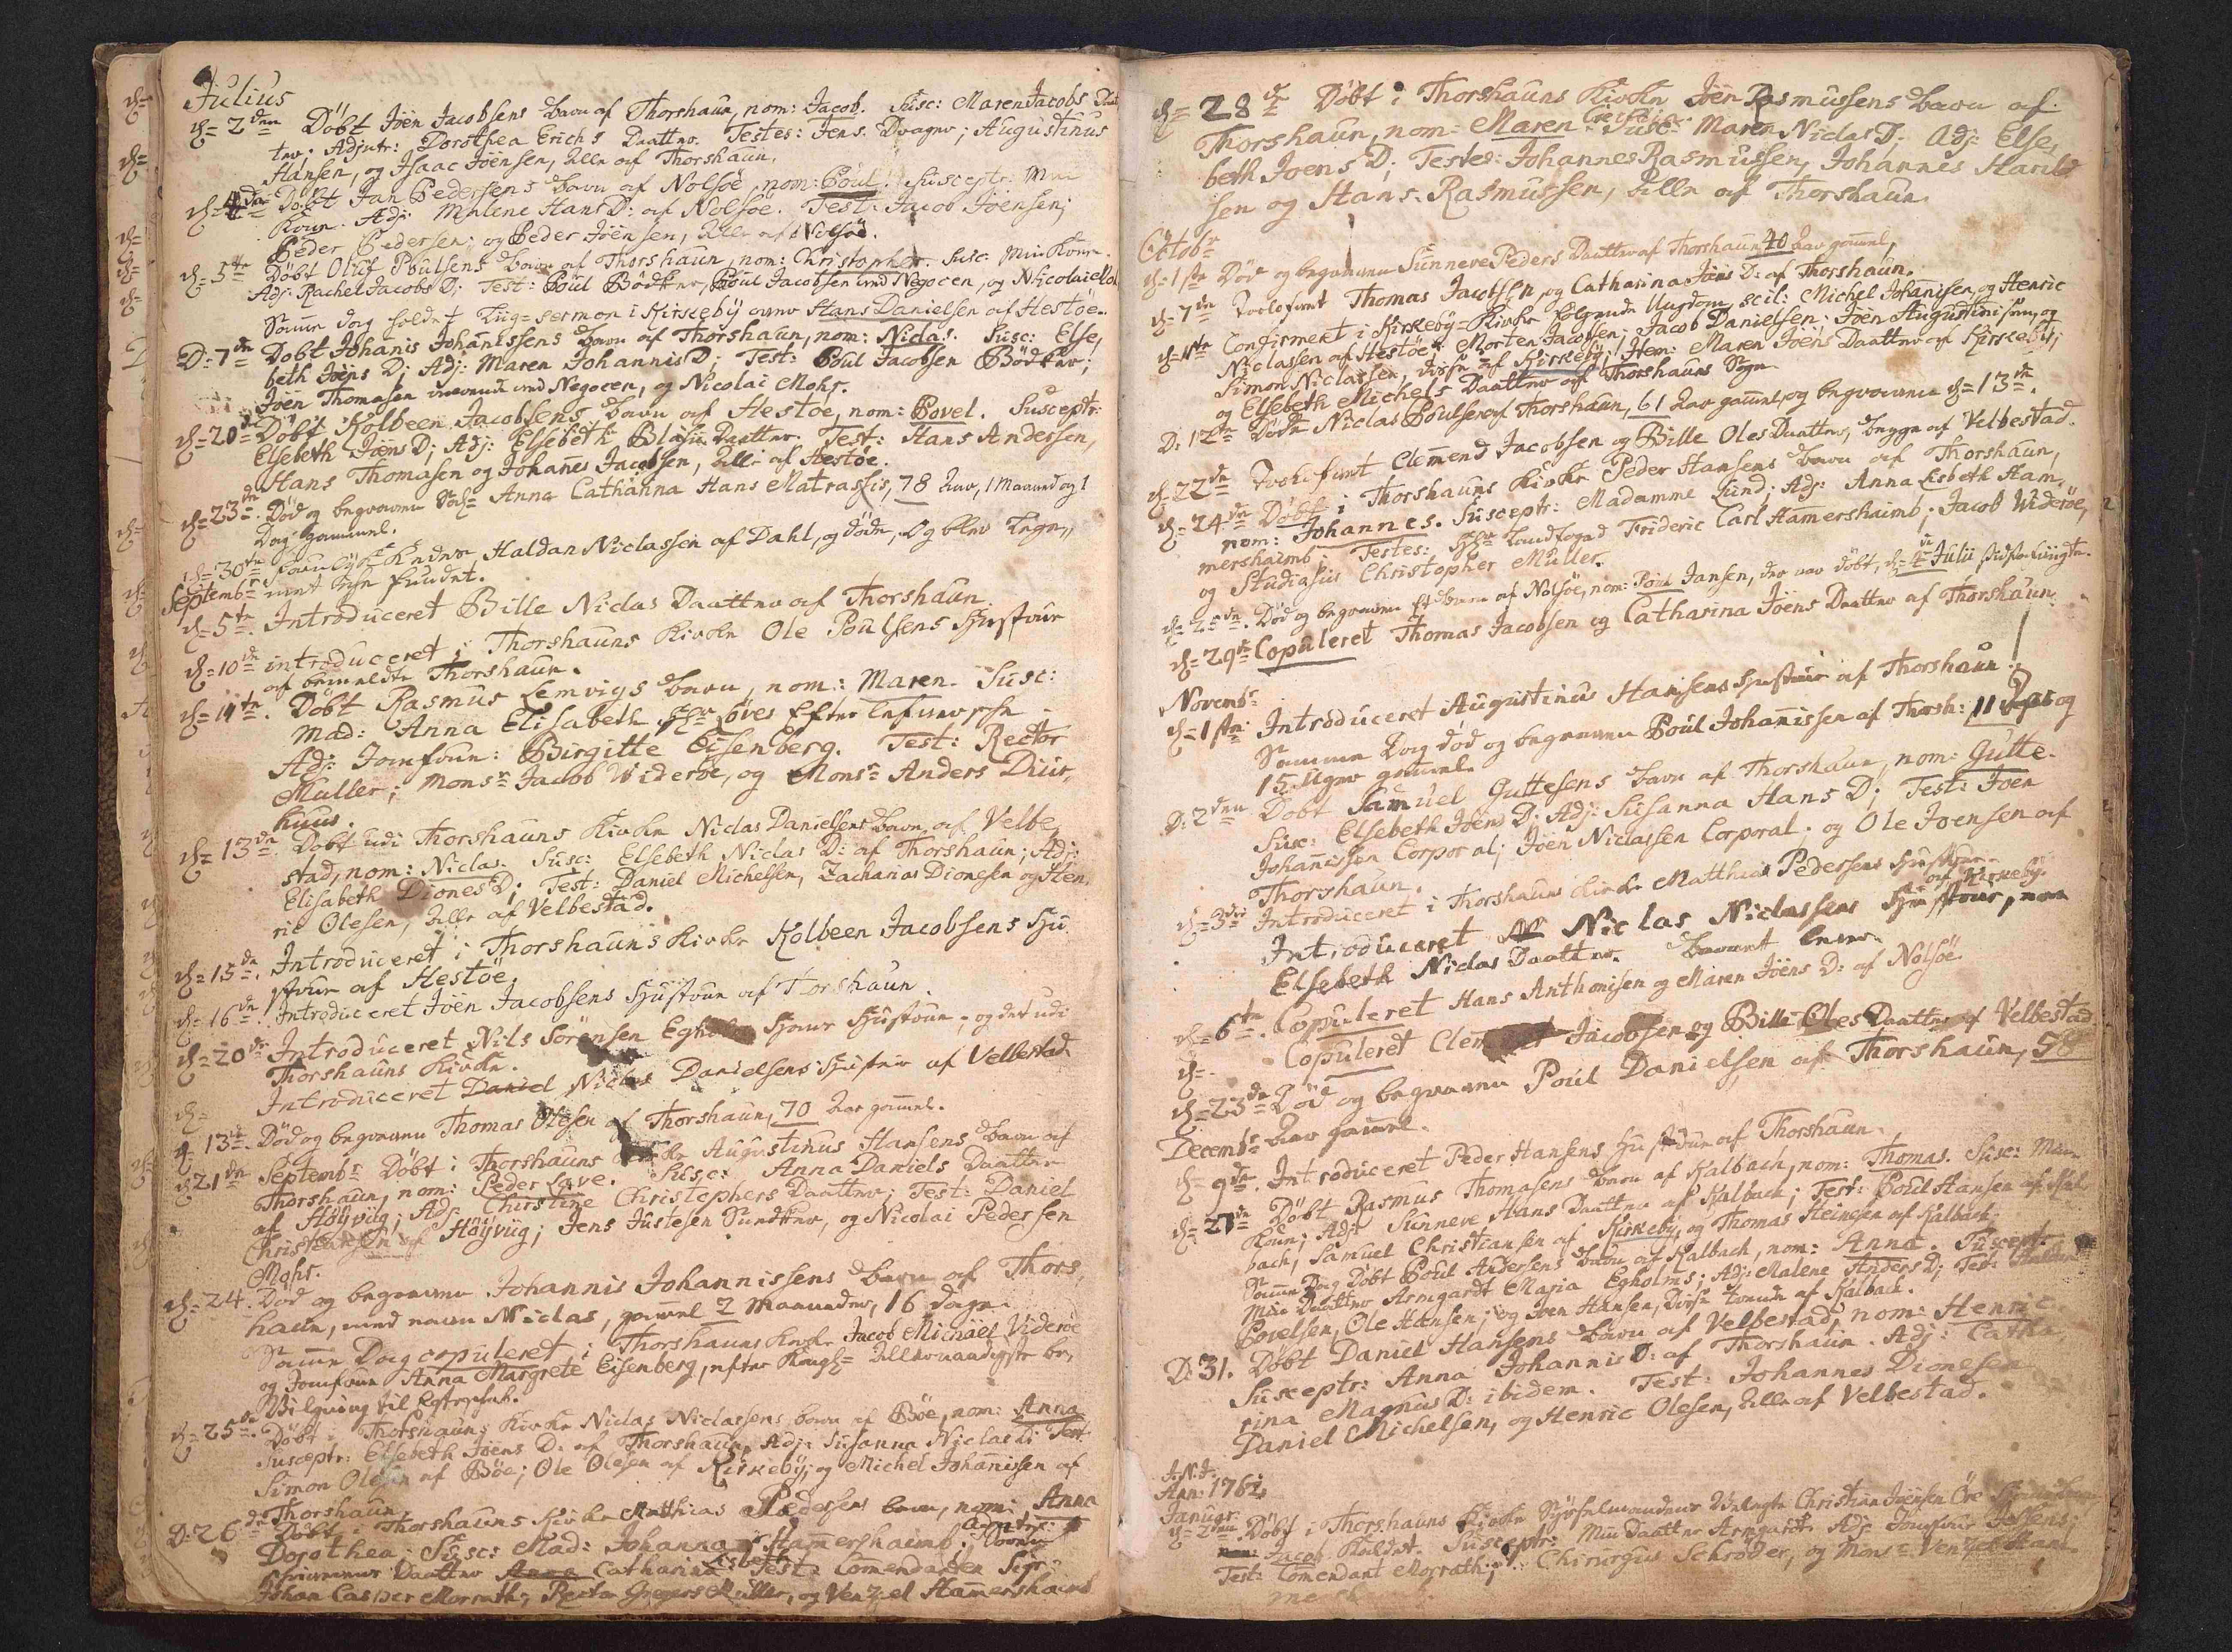 Julius
d= 2den Döbt Jöen Jacobsens barn af Thorshaun, nom: Jacob. Susc: Maren Jacobs Daat
ter. Adjutr: Dorothea Erichs Daatter. Testes: Jens Dragner; Augustinus
Hansen, og Isaac Jöensen, alle af Thorshaun.
d= 4de Döbt Jan Pedersens barn af Nolsöe nom: Poul. Susceptr: Min
Kone. Adj: Malene Hans D: af Nolsöe. Test: Jacob Jöensen;
Peder Pedersen; og Peder Jöensen, alle af Nolsöe.
d= 5te Döbt Oluf Poulsens barn af Thorshaun, nom: Christopher. Susc: Min Kone.
Adj: Rachel Jacobs D; Test: Poul Bödker, Poul Jacobsen ved Negocen, og Nicolai Mohr
Samme dag holdet Liig-sermon i Kirkebÿ over Hans Danielsen af Hestöe.
D: 7de Döbt Johanis Johanissens barn af Thorshaun, nom: Niclas. Susc: Else,
beth Jöens D; Adj: Maren Johannis D; Test: Poul Jacobsen Bödker;
Jöen Thomasen ved Negocen, og Nicolai Mohr.
d= 20de Döbt Kolbeen Jacobsens barn af Hestoe, nom: Povel. Susceptr:
Elsebeth Joens D; Adj: Elsebeth Blasii Daatter. Test: Hans Andersen,
Hans Thomasen og Johannes Jacobsen, alle af Hestöe.
d= 23de Död og begraven Anna Catharina Hans Matrassis, 78 Aar, 1 Maaned og 1
Dag gammel.
d= 30te Haldan Niclassen af Dahl, og döde, Og blev Lege,,
met igien fundet.
Septembr
d= 5te. Introduceret Bille Niclas Daatter af Thorshaun.
d= 10de introduceret i Thorshauns Kirke Ole Poulsens Hustrue
af bemeldte Thorshaun.
d= 11te. Döbt Rasmus Lemvigs barn, nom: Maren. Susc:
Mad: Anna Elisabeth Hr Löves Efterleverske
Adj: Jomfrue: Birgitte Eisenberg. Test: Rector
Müller; Monsr Jacob Wideröe, og Monsr Anders Diür,
huus.
d= 13de. Döbt udi Thorshauns Kirke Niclas Danielsens barn af Velbe
stad, nom: Niclas. Susc: Elsebeth Niclas D: af Thorshaun; Adj:
Elisabeth Diones D; Test: Daniel Michelsen, Zacharias Dionesen og Hen,
ric Olesen, alle af Velbestad.
d= 15de. Introduceret i Thorshauns Kirke Kolbeen Jacobsens Hu
strue af Hestöe.
d= 16de. Introduceret Jöen Jacobsens Hustrue af Thorshaun.
d= 20de Introduceret Nils Sörensen Hustrue; og det udi
Thorshauns Kirke.
d= Introduceret Daniel Niclas Danielsens Hustrue af Velbestad
d= 13de. Död og begraven Thomas Olesen af Thorshaun, 70 Aar gamel.
d= 21de Septembr Döbt i Thorshauns Kirke Augustinus Hansens barn af
Thorshaun, nom: Peder Løve. Susc: Anna Daniels Daatter
af Höÿviig; Adj: Christine Christophers Daatter; Test: Daniel
Christiansen af Höÿviig; Jens Justesen Snedker, og Nicolai Pedersen
Mohr.
d= 24. Död og begraven Johannis Johannissens barn af Thors,
haun, med navn Niclas, gamel 2 Maaneder, 16 dage.
Samme Dag copuleret i Thorshauns Kirke Jacob Michael Videröe
og Jomfrue Anna Margrete Eisenberg, efter Kongl= Allernaadigste be,
Vilgning til Egteskab.
d= 25de. Döbt i Thorshauns Kirke Niclas Niclassens barn af Böe, nom: Anna
Susceptr: Elsebeth Jöens D: af Thorshaun, Adj: Susanna Niclas D; Test:
Simon Olesen af Böe; Ole Olesen af Kirkebÿ; og Michel Johanissen af
Thorshaun.
D: 26de Döbt i Thorshauns Kirke Matthias Pedersens barn, nom: Anna
Dorothea. Susc: Mad: Johanna Hamershaimb; Adjutr:
Daatter Anna Catharina Lisbeth Test: Comendanten Sigr
Johan Casper Morrath; Rector Gregers Müller, og Venzel Hamershaimb
d= 28de Döbt i Thorshauns Kirke Jöen Rasmussens barn af
Thorshaun, nom: Maren Susc: Maren Niclas D; Adj: Else,
beth Joens D; Testes: Johannes Rasmussen, Johannes Harild
sen og Hans Rasmussen, alle af Thorshaun.
Octobr
d= 1ste Död og begraven Sunneve Peders Daatter af Thorshaun 40 Aar gamel,
d= 7de Trolofvet Thomas Jacobsen, og Catharina Jöens D: af Thorshaun.
d= 11te Confirmeret i Kirkebÿ-Kirke fölgende Ungdom, scil: Michel Johanisen, og Henric
Niclassen af Hestöe; Morten Jacobsen; Jacob Danielsen; Jöen Augustini sen, og
Simon Niclassen, disse af Kirkebÿ; Item: Maren Jöens Daatter af Kirkebÿ;
og Elsebeth Michels Daatter af Thorshauns Sogn
D: 12te Döde Niclas Poulsen af Thorshaun, 61 Aar gamel, og begraven d= 13de.
d= 22de Trolofvet Clemend Jacobsen og Bille Oles Daatter, begge af Velbestad.
d= 24de Döbt i Thorshauns Kirke Peder Hansens barn af Thorshaun,
nom: Johannes. Susceptr: Madamme Lund; Adj: Anna Lisbeth Ham,
mershaimb; Testes: Hr Landfoged Frideric Carl Hamershaimb; Jacob Wideröe,
og Studiosus Christopher Müller.
Död og begraven et barn af Nolsöe, nom: Poul Jansen, der var döbt, d= 4de Julii
d= 29de Copuleret Thomas Jacobsen og Catharina Jöens Daatter af Thorshaun.
Novembr
d= 1ste. Introduceret Augustinus Hansens Hustrue af Thorshaun.
Samme Dag död og begraven Poul Johanissen af Thorsh: 11 Aar og
15 Uger gamel.
D: 2den Döbt Samuel Guttesens barn af Thorshaun, nom: Gutte.
Susc: Elsebeth Jöens D: Adj: Susanna Hans D; Test: Joen
Johanissen Corporal; Jöen Niclassen Corporal. og Ole Joensen af
Thorshaun.
d= 3die Introduceret i Thorshauns Kirke Matthias Pedersens Hustrue
af Kirkebÿ.
Introduceret Niclas Niclassens Hustrue, nom
Elsebeth Niclas Daatter. barnet lever.
d= 6te. Copuleret Hans Anthonisen og Maren Jöens D: af Nolsöe.
d= Copuleret Clement Jacobsen og Bille Oles Daatter af Velbestad
d= 23de Död og begraven Poul Danielsen af Thorshaun, 58
Aar gamel.
Decembr
d= 9de. Introduceret Peder Hansens Hustrue af Thorshaun.
d= 27de Döbt Rasmus Thomasens barn af Kalbach, nom: Thomas. Susc: Min
Kone; Adj: Sunneve Hans Daatter af Kalbach; Test: Poul Hansen af Kal
bach, Samuel Christiansen af Kirkebÿ, og Thomas Heinesen af Kalbach.
Samme Dag Döbt Poul Andersens barn af Kalbach, nom: Anna. Suscept:
Min Daatter Armgardt Maria Egholms; Adj: Malene Anders D; Test:
Povelsen, Ole Hansen; og Joen Hansen, disse af Kalbach.
D: 31. Döbt Daniel Hansens barn af Velbestad, nom: Henric
Susceptr: Anna Johannis D: af Thorshaun. Adj: Catha
rina Magnus D: ibidem. Test: Johannes Dionesen
Daniel Michelsen, og Henric Olesen, alle af Velbestad.
Ann: 1762
Januar:
d= 2den Döbt i Thorshauns Kirke Sÿsselmandens Christian Jöensen
nom: Jacob kaldet. Susceptr: Min Daatter Armgardt Adj: Jomfrue
Test: Comendant Morrath; Chirurgus Schröder, og Monsr Venzel Ham